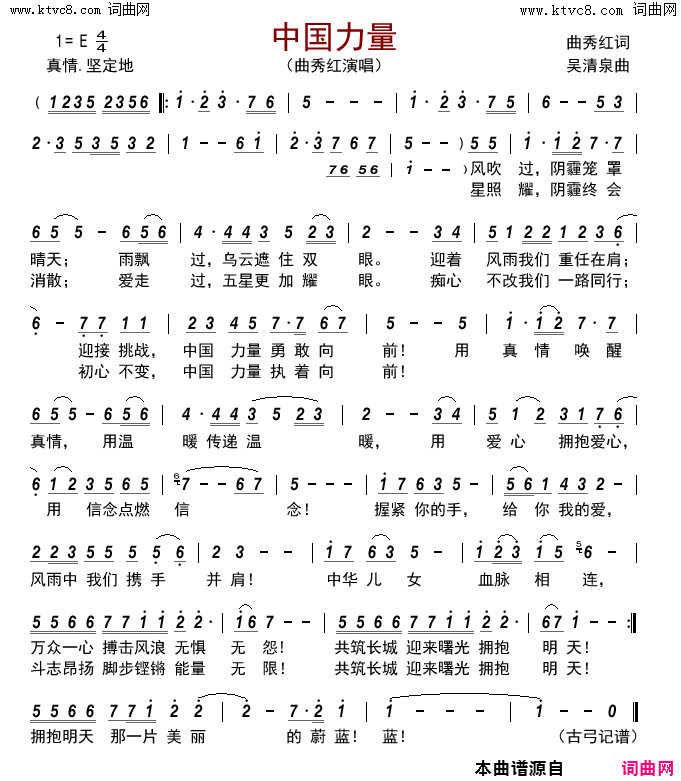 www.ktvc8.com 词曲网
www.ktvc8.com 词曲网
中国力量
1= E 4/4
曲秀红词
真情.坚定地
（曲秀红演唱）
吴清泉曲
( 1235 2356 ‖: 1 · 2 3 · 7 6 | 5 - - - | 1 · 2 3 · 7 5 | 6 - - 5 3 |
2 · 3 5 3 5 3 2 | 1 - - 6 1 | 2 · 3 7 6 7 | 5 - - ) 5 5 | 1 · 1 2 7 · 7 |
7 6 5 6 | 1 - - )
风吹 过，阴霾笼 罩
星照 耀，阴霾终 会
6 5 5 - 6 5 6 | 4 · 4 4 3 5 2 3 | 2 - - 3 4 | 5 1 2 2 1 2 3 6 |
晴天； 雨飘 过，乌云遮 住 双 眼。 迎着 风雨我们 重任在肩；
消散； 爱走 过，五星更 加 耀 眼。 痴心 不改我们 一路同行；
6 - 7 7 1 1 | 2 3 4 5 7 · 7 6 7 | 5 - - 5 | 1 · 1 2 7 · 7 |
迎接 挑战， 中国 力量 勇 敢向 前！ 用 真 情 唤 醒
初心 不变， 中国 力量 执 着向 前！
6 5 5 - 6 5 6 | 4 · 4 4 3 5 2 3 | 2 - - 3 4 | 5 1 2 3 1 7 6 |
真情， 用温 暖 传递 温 暖， 用 爱 心 拥抱爱心，
6 1 2 3 5 6 5 | 6 7 - - 6 7 | 5 - - - | 1 7 6 3 5 - | 5 6 1 4 3 2 - |
用 信念点燃 信 念！ 握紧 你的手， 给 你 我的爱，
2 2 3 5 5 5 6 | 2 3 - - | 1 7 6 3 5 | 1 2 3 1 5 5 6 - |
风雨中 我们 携 手 并 肩！ 中华 儿 女 血脉 相 连，
5 5 6 6 7 7 1 1 2 2 · | 1 6 7 - - | 5 5 6 6 7 7 1 1 2 2 · | 6 7 1 - - :‖
万众一心 搏击风浪 无惧 无 怨！ 共筑长城 迎来曙光 拥抱 明 天！
斗志昂扬 脚步铿锵 能量 无 限！ 共筑长城 迎来曙光 拥抱 明 天！
5 5 6 6 7 7 1 2 2 | 2 - 7 · 2 1 | 1 - - - | 1 - - 0 ‖
拥抱明天 那一片 美 丽 的 蔚 蓝！ 蓝！ （古弓记谱）
本曲谱源自 词曲网